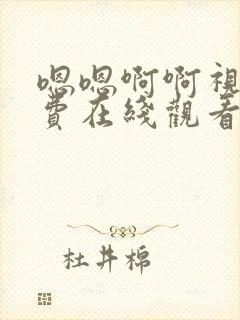 嗯嗯啊啊視
費在綫觀看
杜井棉